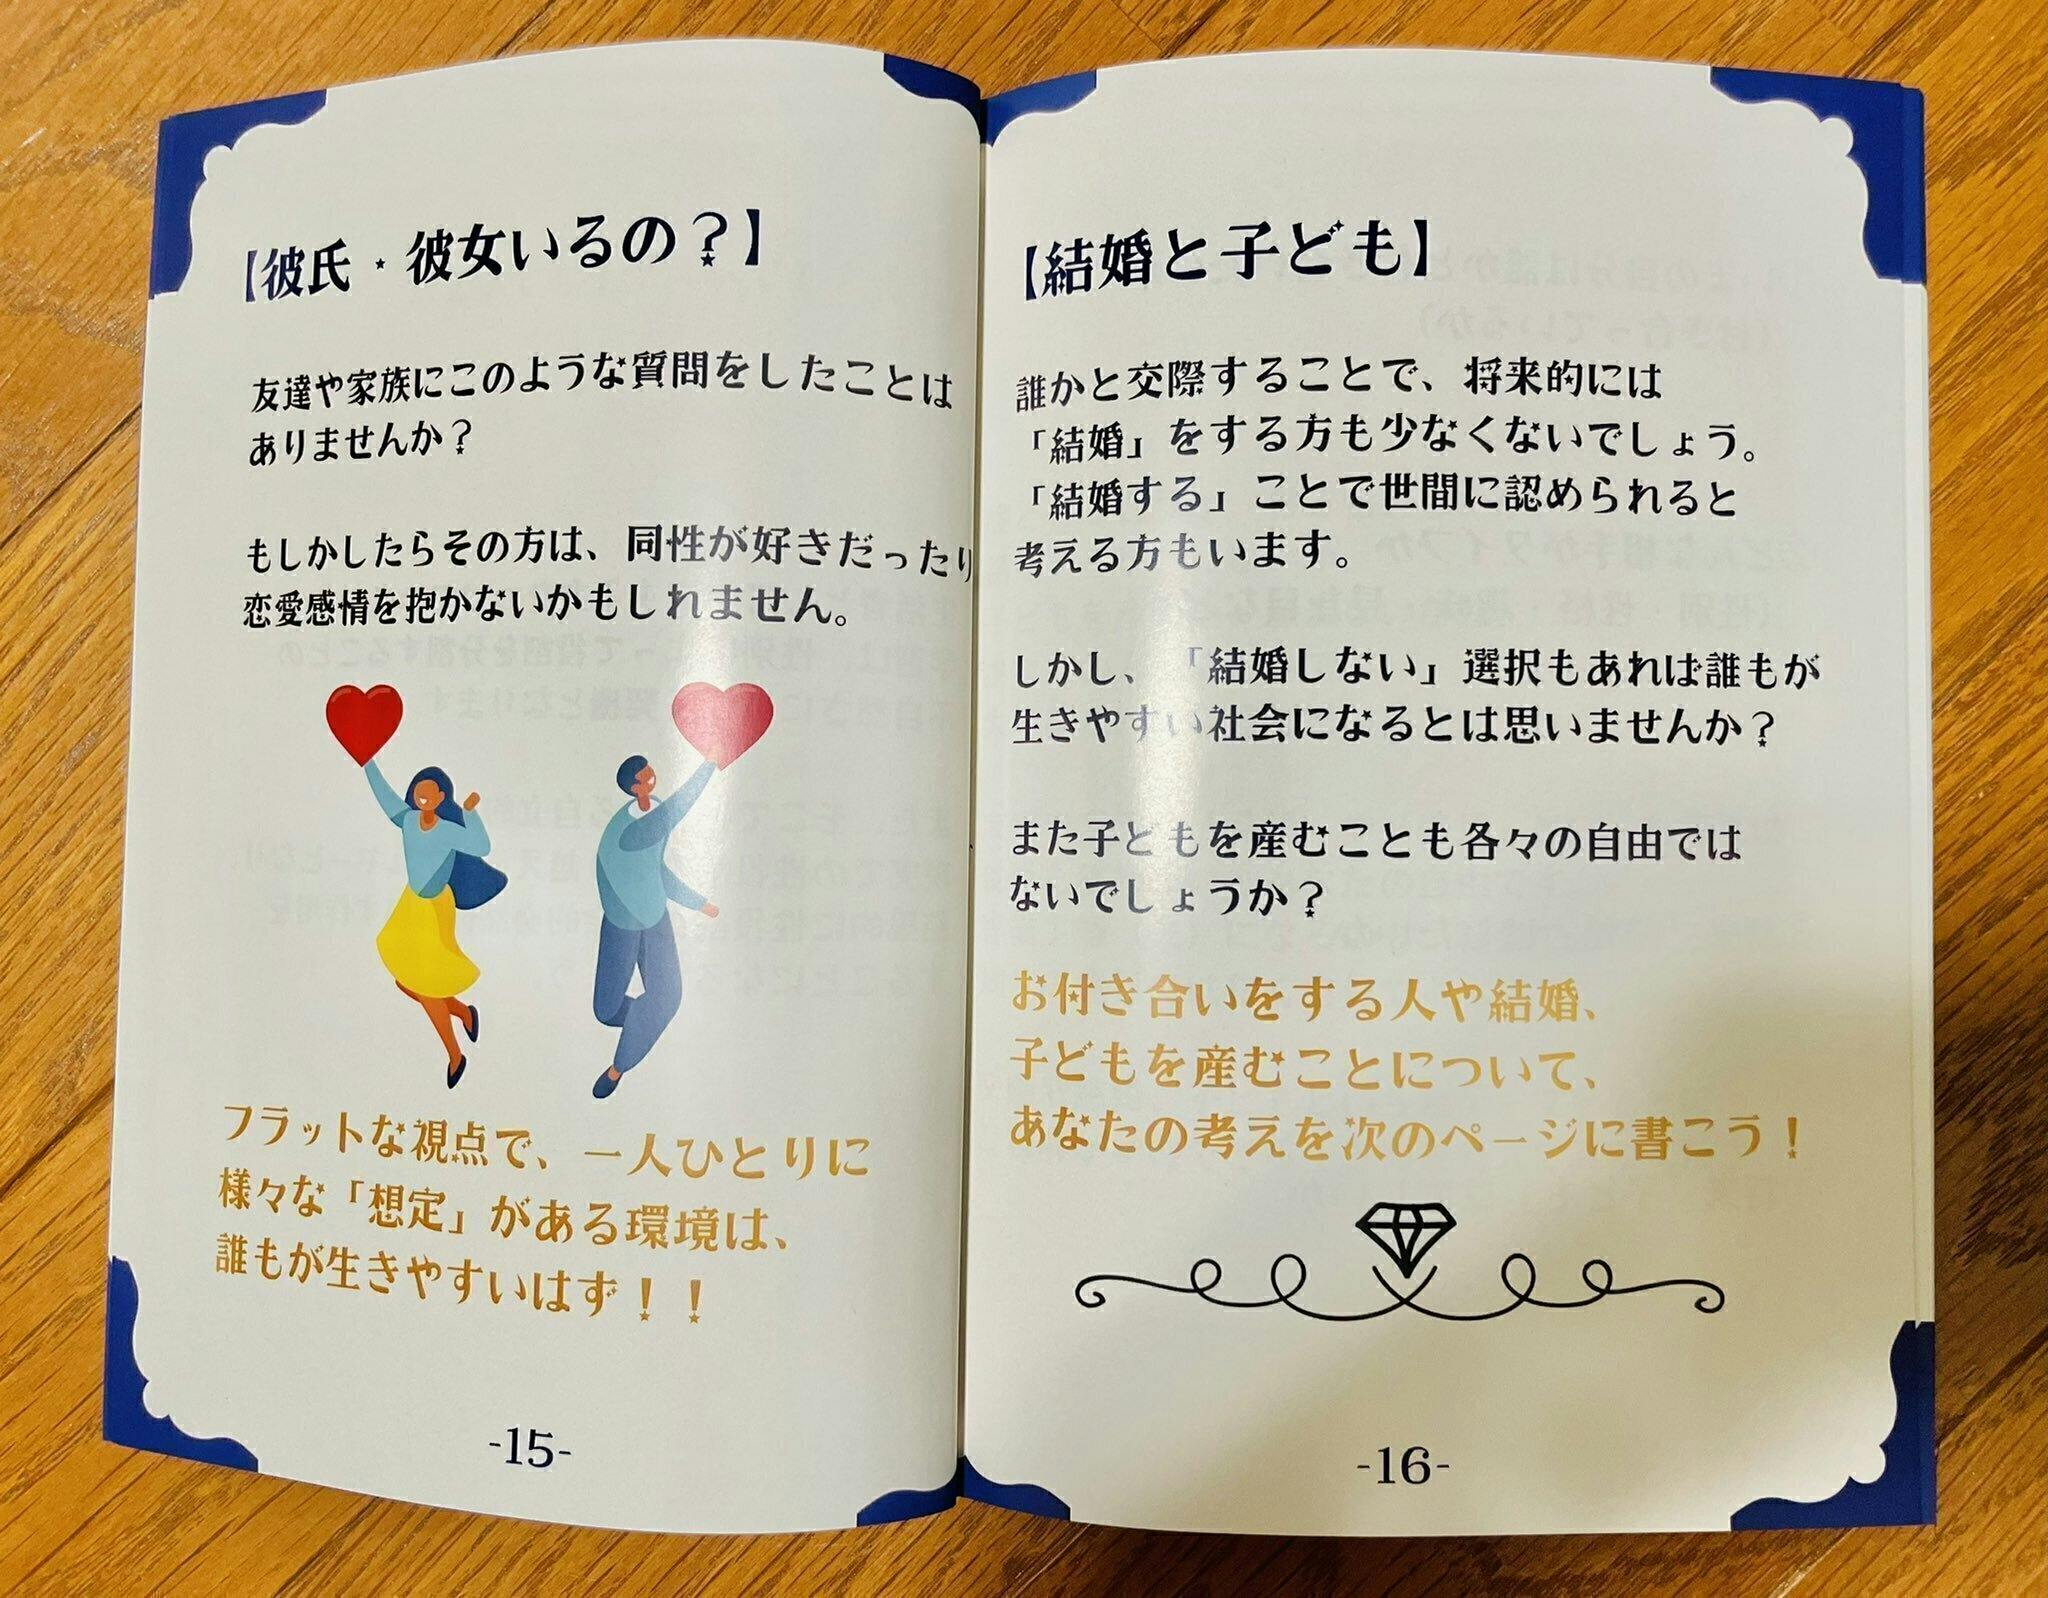 【彼氏・彼女いるの？】
友達や家族にこのような質問をしたことは
ありませんか？
もしかしたらその方は、同性が好きだったり
恋愛感情を抱かないかもしれません。
フラットな視点で、一人ひとりに
様々な「想定」がある環境は、
誰もが生きやすいはず！！
-15-
【結婚と子ども】
誰かと交際することで、将来的には
「結婚」をする方も少なくないでしょう。
「結婚する」ことで世間に認められると
考える方もいます。
しかし、「結婚しない」選択もあれば誰もが
生きやすい社会になるとは思いませんか？
また子どもを産むことも各々の自由では
ないでしょうか？
お付き合いをする人や結婚、
子どもを産むことについて、
あなたの考えを次のページに書こう！
-16-